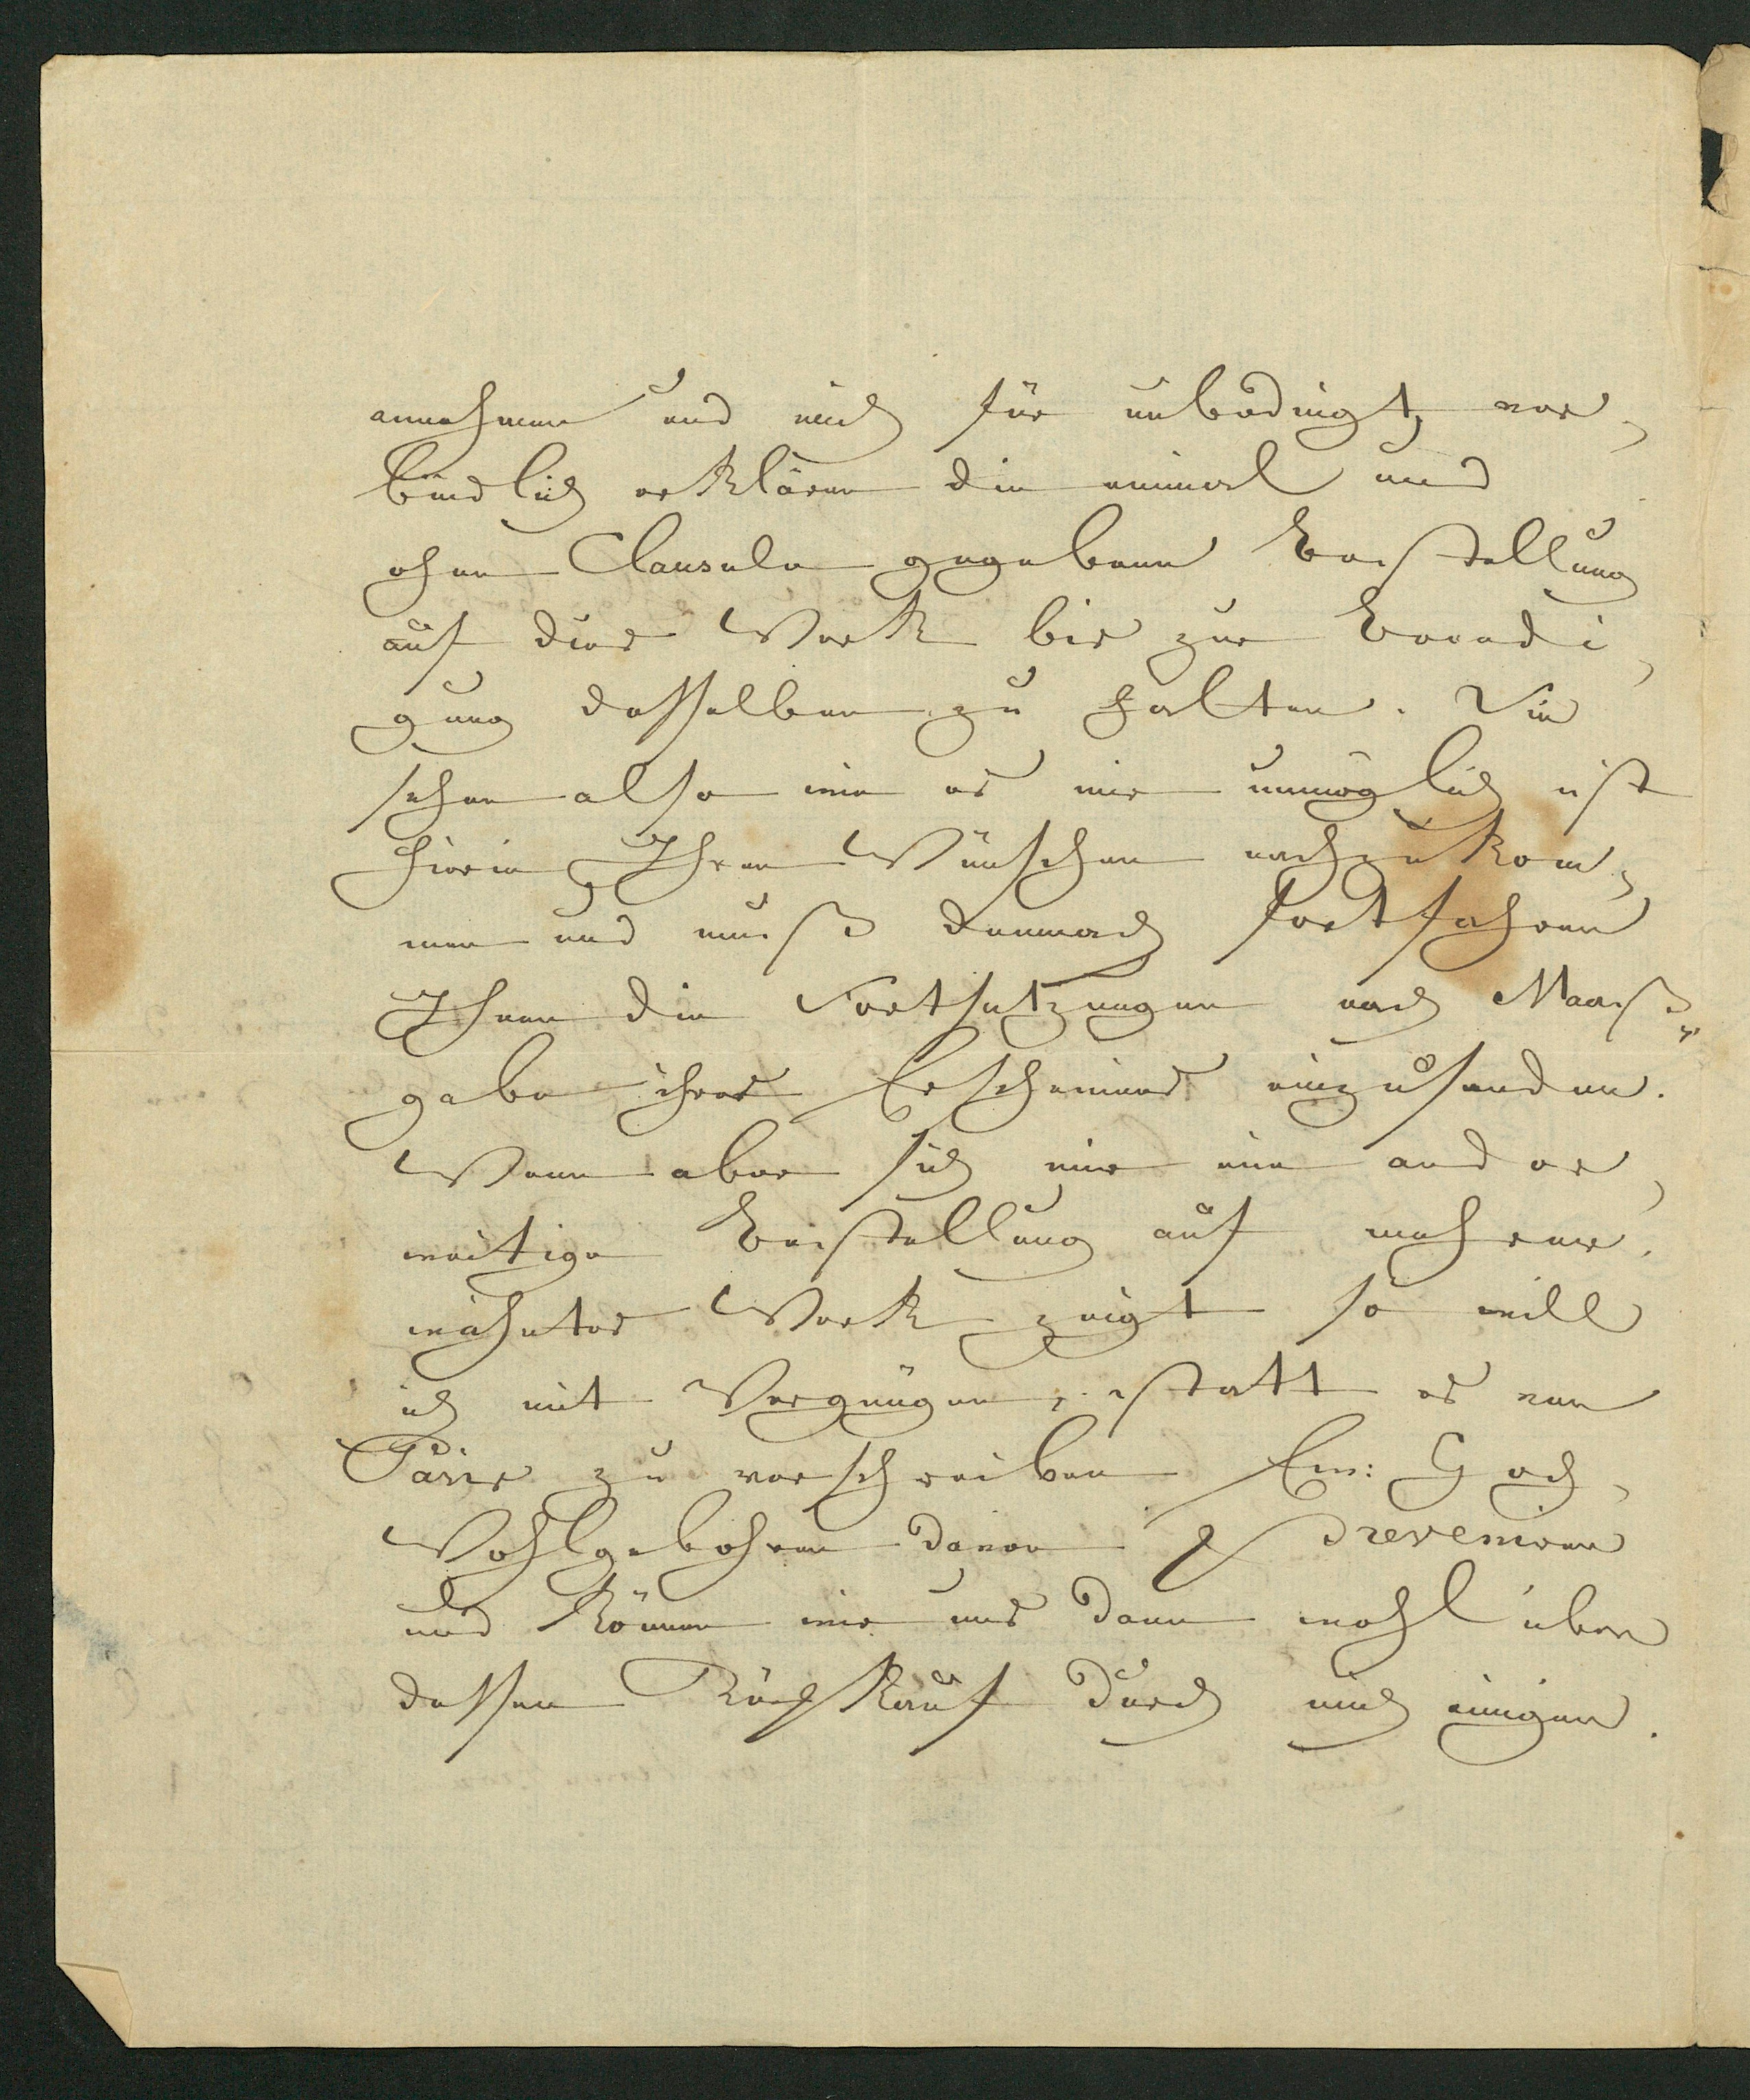 annehmen und mich für unbedingt ver-
bindlich erklären die einmal und
ohne Clauseln gegebene Bestellung
auf dies Werk bis zur Beendi-
gung desselben zu halten. Sie
sehen also wie es mir unmöglich ist
hierin Ihren Wünschen nachzukom-
men und muß demnach fortfahren
Ihnen die Fortsetzungen nach Maaß-
gabe ihres Erscheinens einzusenden.
Wenn aber sich mir eine ander-
weitige Bestellung auf mehrer-
wähntes Werk zeigt so will
ich mit Vergnügen, statt es von
Paris zu verschreiben Ew: Hoch-
Wohlgebohren davon prevenieren
und können wir uns dann wohl über
dessen Rückkauf durch mich einigen.